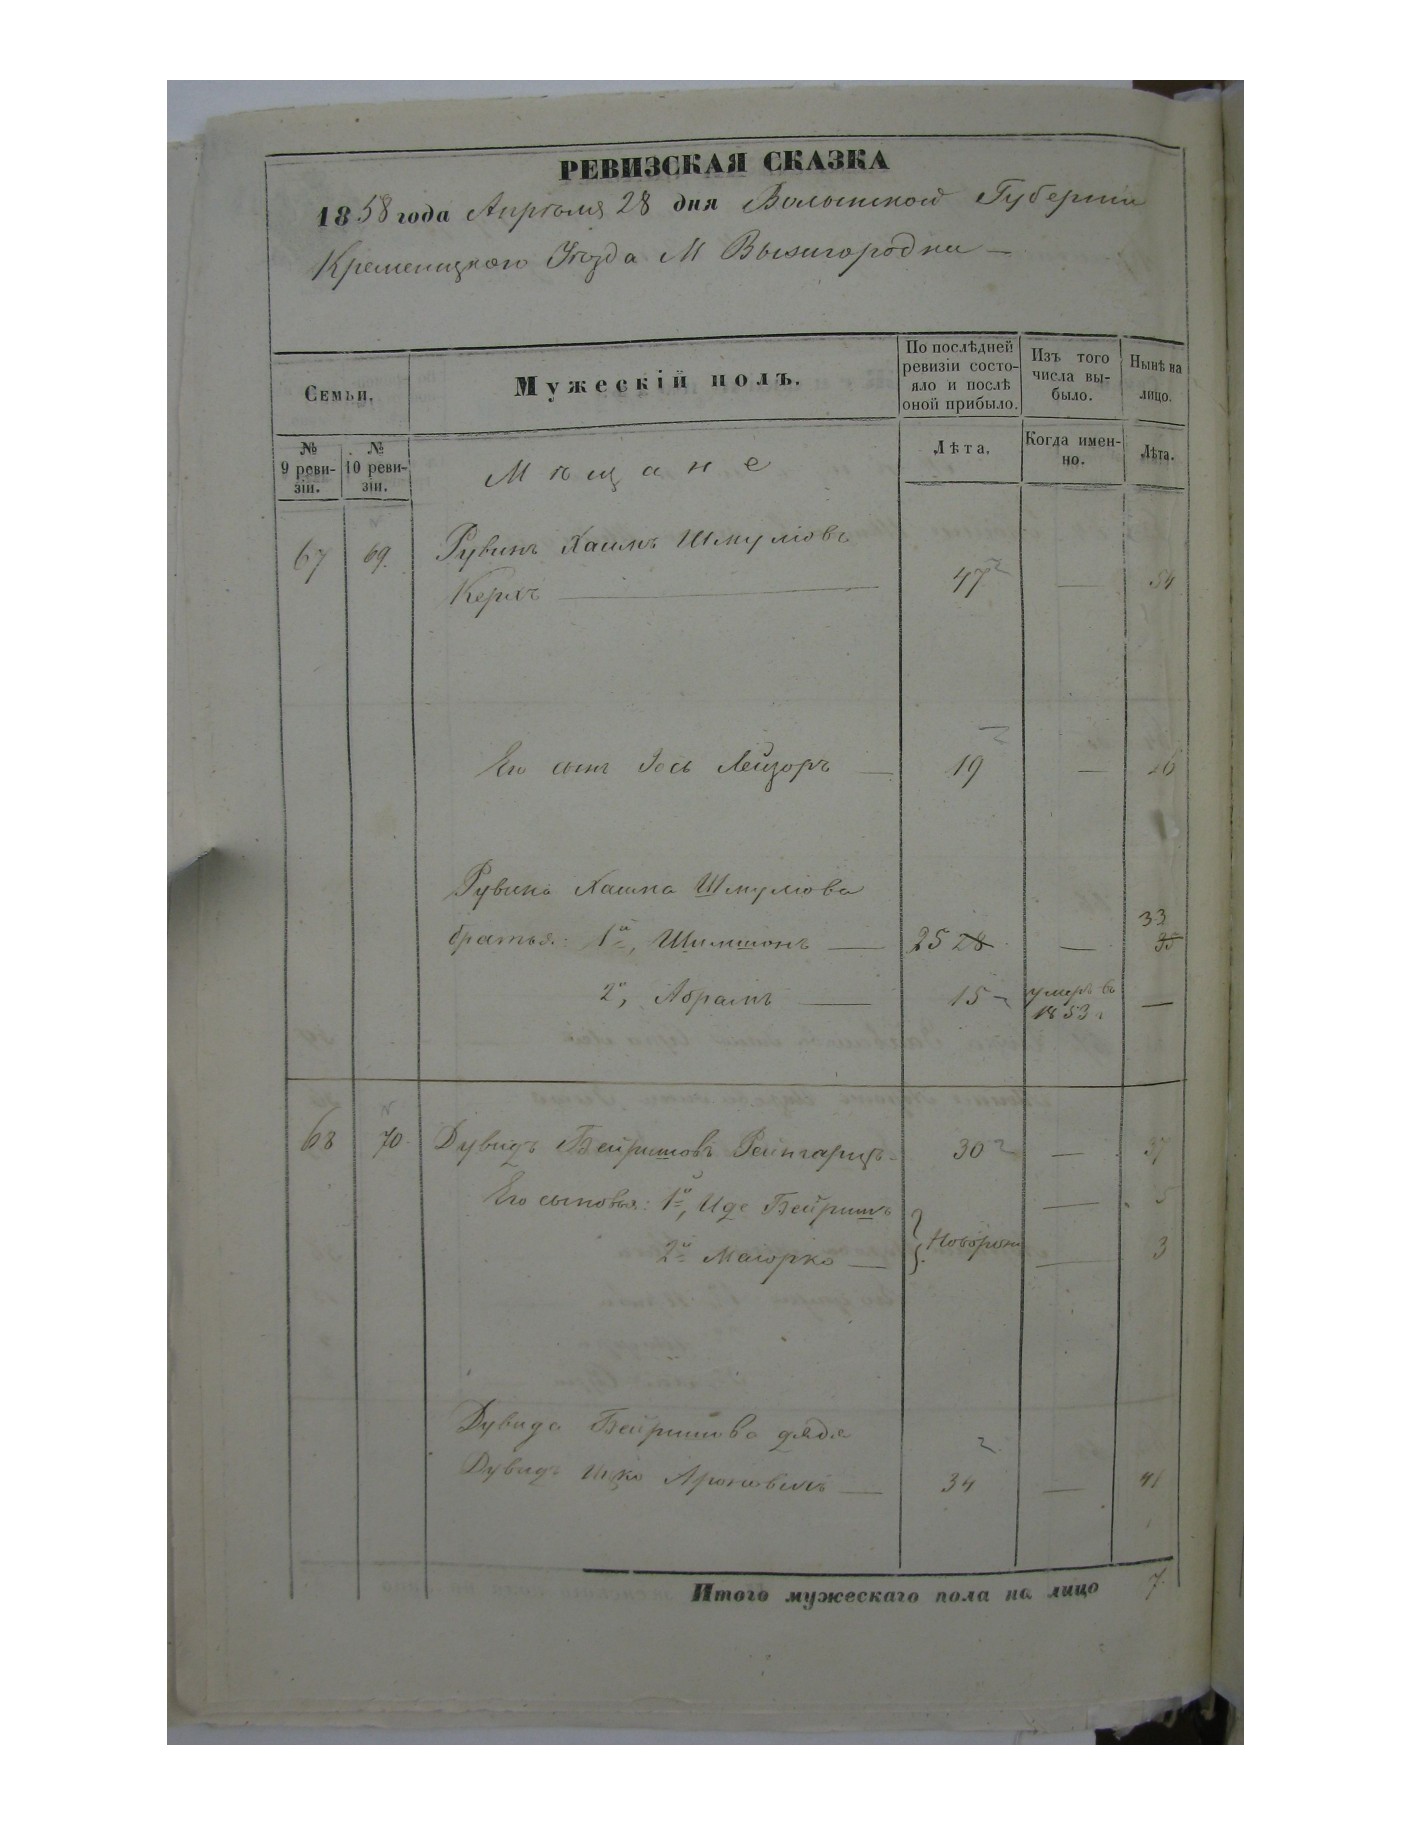 РЕВИЗСКАЯ СКАЗКА
1858 года Апрѣля 28 дня Волынской Губерніи
Кременецкаго Уѣзда М Вышгородка —
Семьи.
Мужескій полъ.
По послѣдней ревизіи состояло и послѣ оной прибыло.
Изъ того числа выбыло.
Нынѣ на лицо.
№ 9 ревизіи.
№ 10 ревизіи.
Мѣщане
Лѣта.
Когда именно.
Лѣта.
67 69. Рувинъ Хаимъ Шмуліовъ
47 — 54
Его сынъ Іось Лейзоръ — 19 — 26
Рувина Хаима Шмуліова
33
братья: 1й, Шимшонъ — 25 28 — 35
2й, Абрамъ — 15 умеръ въ 1853 г —
68 70. Дувидъ Бейришовъ
30 — 37
Его сыновья: 1й, Иде Бейришъ — 5
2й Маіорко — новорожд — 3
Дувида Бейришова дядя
Дувидъ Ицко Ароновичъ — 34 — 41
Итого мужескаго пола на лицо 7.